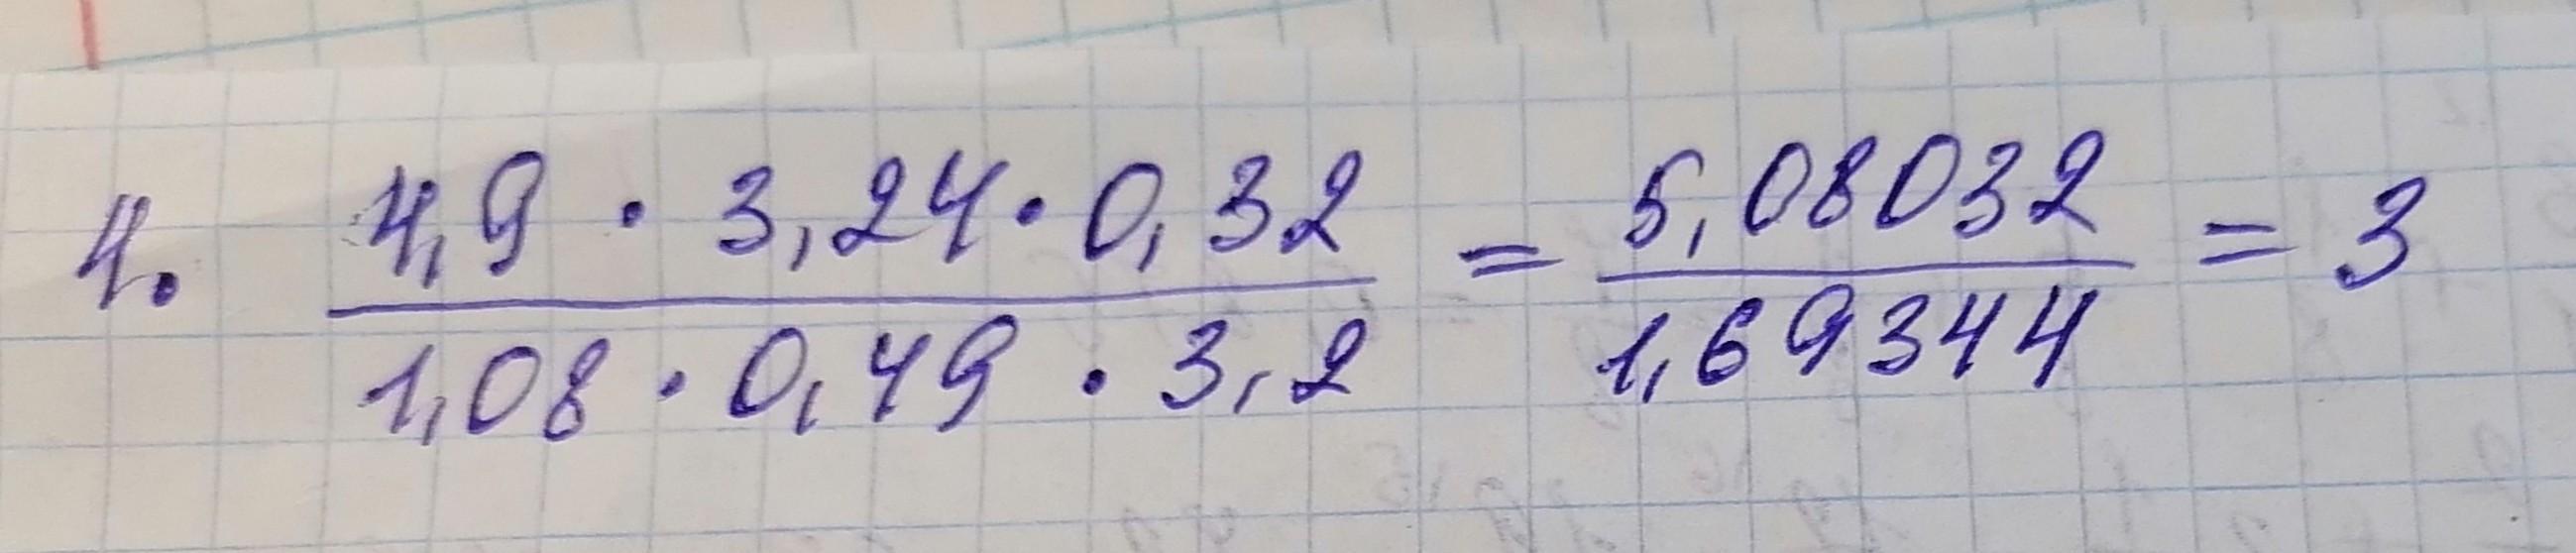 4. (4,9 · 3,24 · 0,32) / (1,08 · 0,49 · 3,2) = 5,08032 / 1,69344 = 3